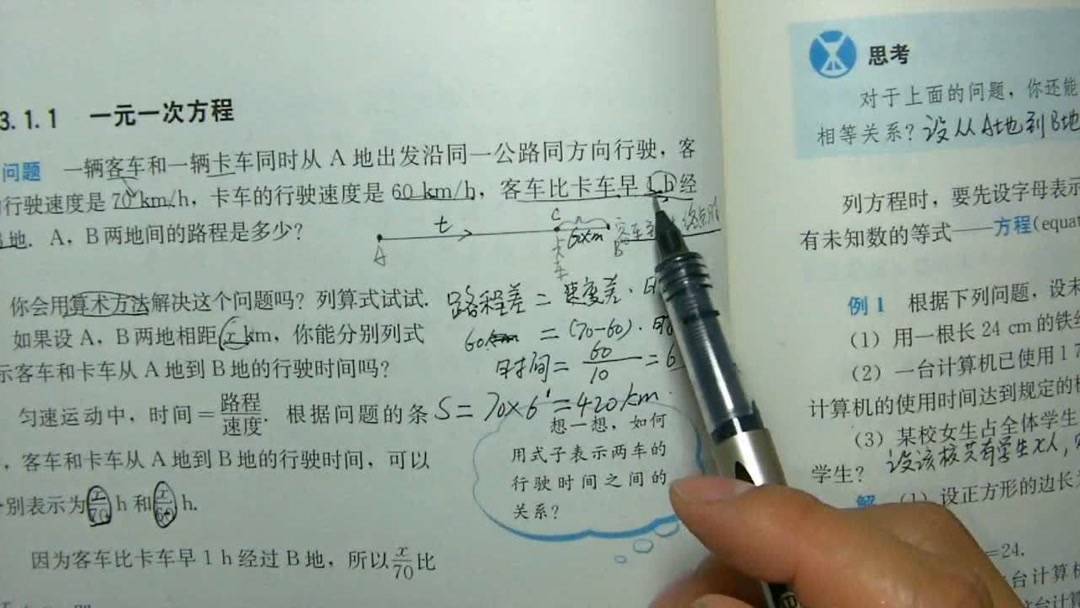 3.1.1 一元一次方程
问题 一辆客车和一辆卡车同时从 A 地出发沿同一公路同方向行驶，客
行驶速度是 70 km/h，卡车的行驶速度是 60 km/h，客车比卡车早 1 h 经
地. A，B 两地间的路程是多少？
t
C
60km
A
卡车
B
你会用算术方法解决这个问题吗？列算式试试.
如果设 A，B 两地相距 x km，你能分别列式
示客车和卡车从 A 地到 B 地的行驶时间吗？
匀速运动中，时间=路程/速度. 根据问题的条
，客车和卡车从 A 地到 B 地的行驶时间，可以
别表示为 x/70 h 和 x/60 h.
因为客车比卡车早 1 h 经过 B 地，所以 x/70 比
路程差 = 速度差·
60 = (70-60)·时
时间 = 60/10 = 6
S = 70×6 = 420km.
想一想，如何
用式子表示两车的
行驶时间之间的
关系？
思考
对于上面的问题，你还能
相等关系？设从A地到B地
列方程时，要先设字母表示
有未知数的等式——方程(equat
例 1 根据下列问题，设未
(1) 用一根长 24 cm 的铁丝
(2) 一台计算机已使用 1 7
计算机的使用时间达到规定的检
(3) 某校女生占全体学生
学生？ 设该校共有学生x人，
解 (1) 设正方形的边长
=24.
台计算机